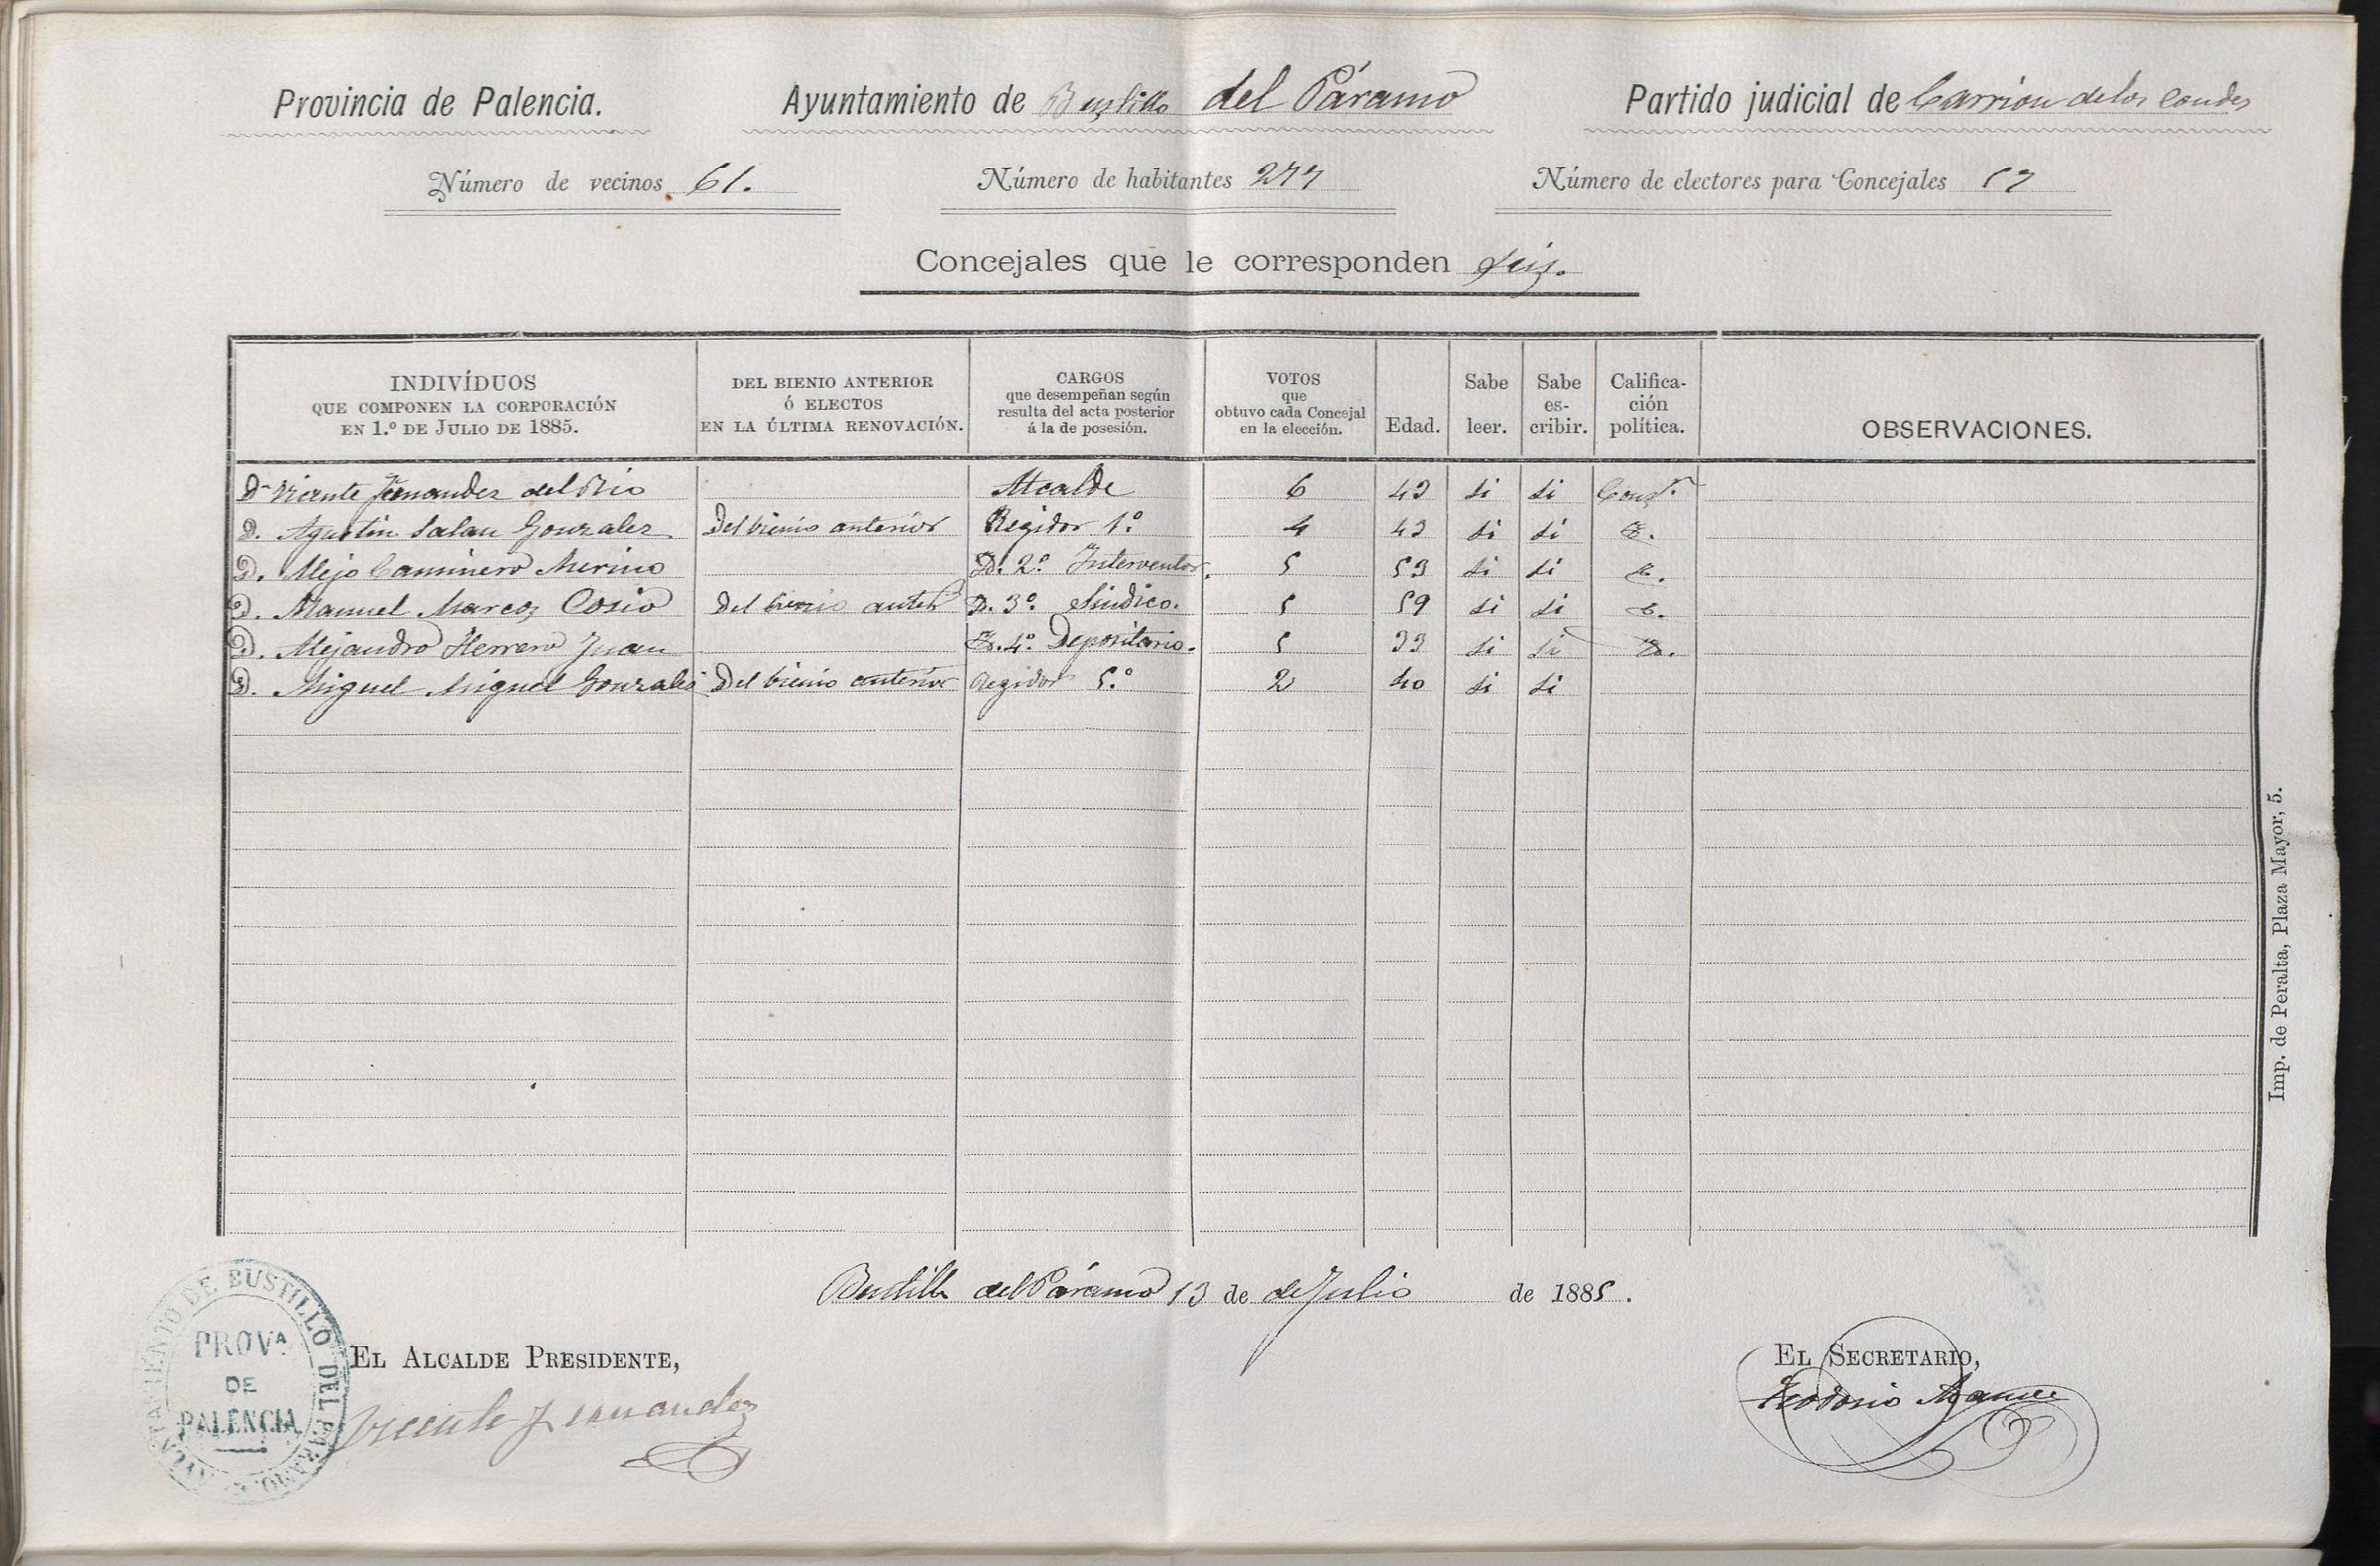 Provincia de Palencia. Ayuntamiento de Bustillo del Páramo Partido judicial de Carrion de los Condes
Número de vecinos 61. Número de habitantes 277 Número de electores para Concejales 57
Concejales que le corresponden Seis.
INDIVÍDUOS QUE COMPONEN LA CORPORACIÓN EN 1.º DE JULIO DE 1885. DEL BIENIO ANTERIOR Ó ELECTOS EN LA ÚLTIMA RENOVACIÓN. CARGOS que desempeñan según resulta del acta posterior á la de posesión. VOTOS que obtuvo cada Concejal en la elección. Edad. Sabe leer. Sabe es-cribir. Califica-ción política. OBSERVACIONES.
Dn Vicente Fernandez del Rio Alcalde 6 43 si si Consr.
D. Agustin Salan Gonzalez Del bienio anterior Regidor 1.º 4 43 si si
D. Alejo Caminero Merino D. 2.º Interventor. 5 53 si si
D. Manuel Marcos Cosio Del bienio anter.r D. 3.º Sindico. 5 59 si si
D. Alejandro Herrero Juan 4.º Depositario. 5 33 si si
D. Miguel Miguel Gonzalez Del bienio anterior Regidor 5.º 2 40 si si
Bustillo del Páramo 13 de de Julio de 1885.
EL ALCALDE PRESIDENTE,
Vicente Fernandez
EL SECRETARIO,
Teodosio
AYUNTAMIENTO DE BUSTILLO DEL PARAMO
PROVA
DE
PALENCIA
Imp. de Peralta, Plaza Mayor, 5.